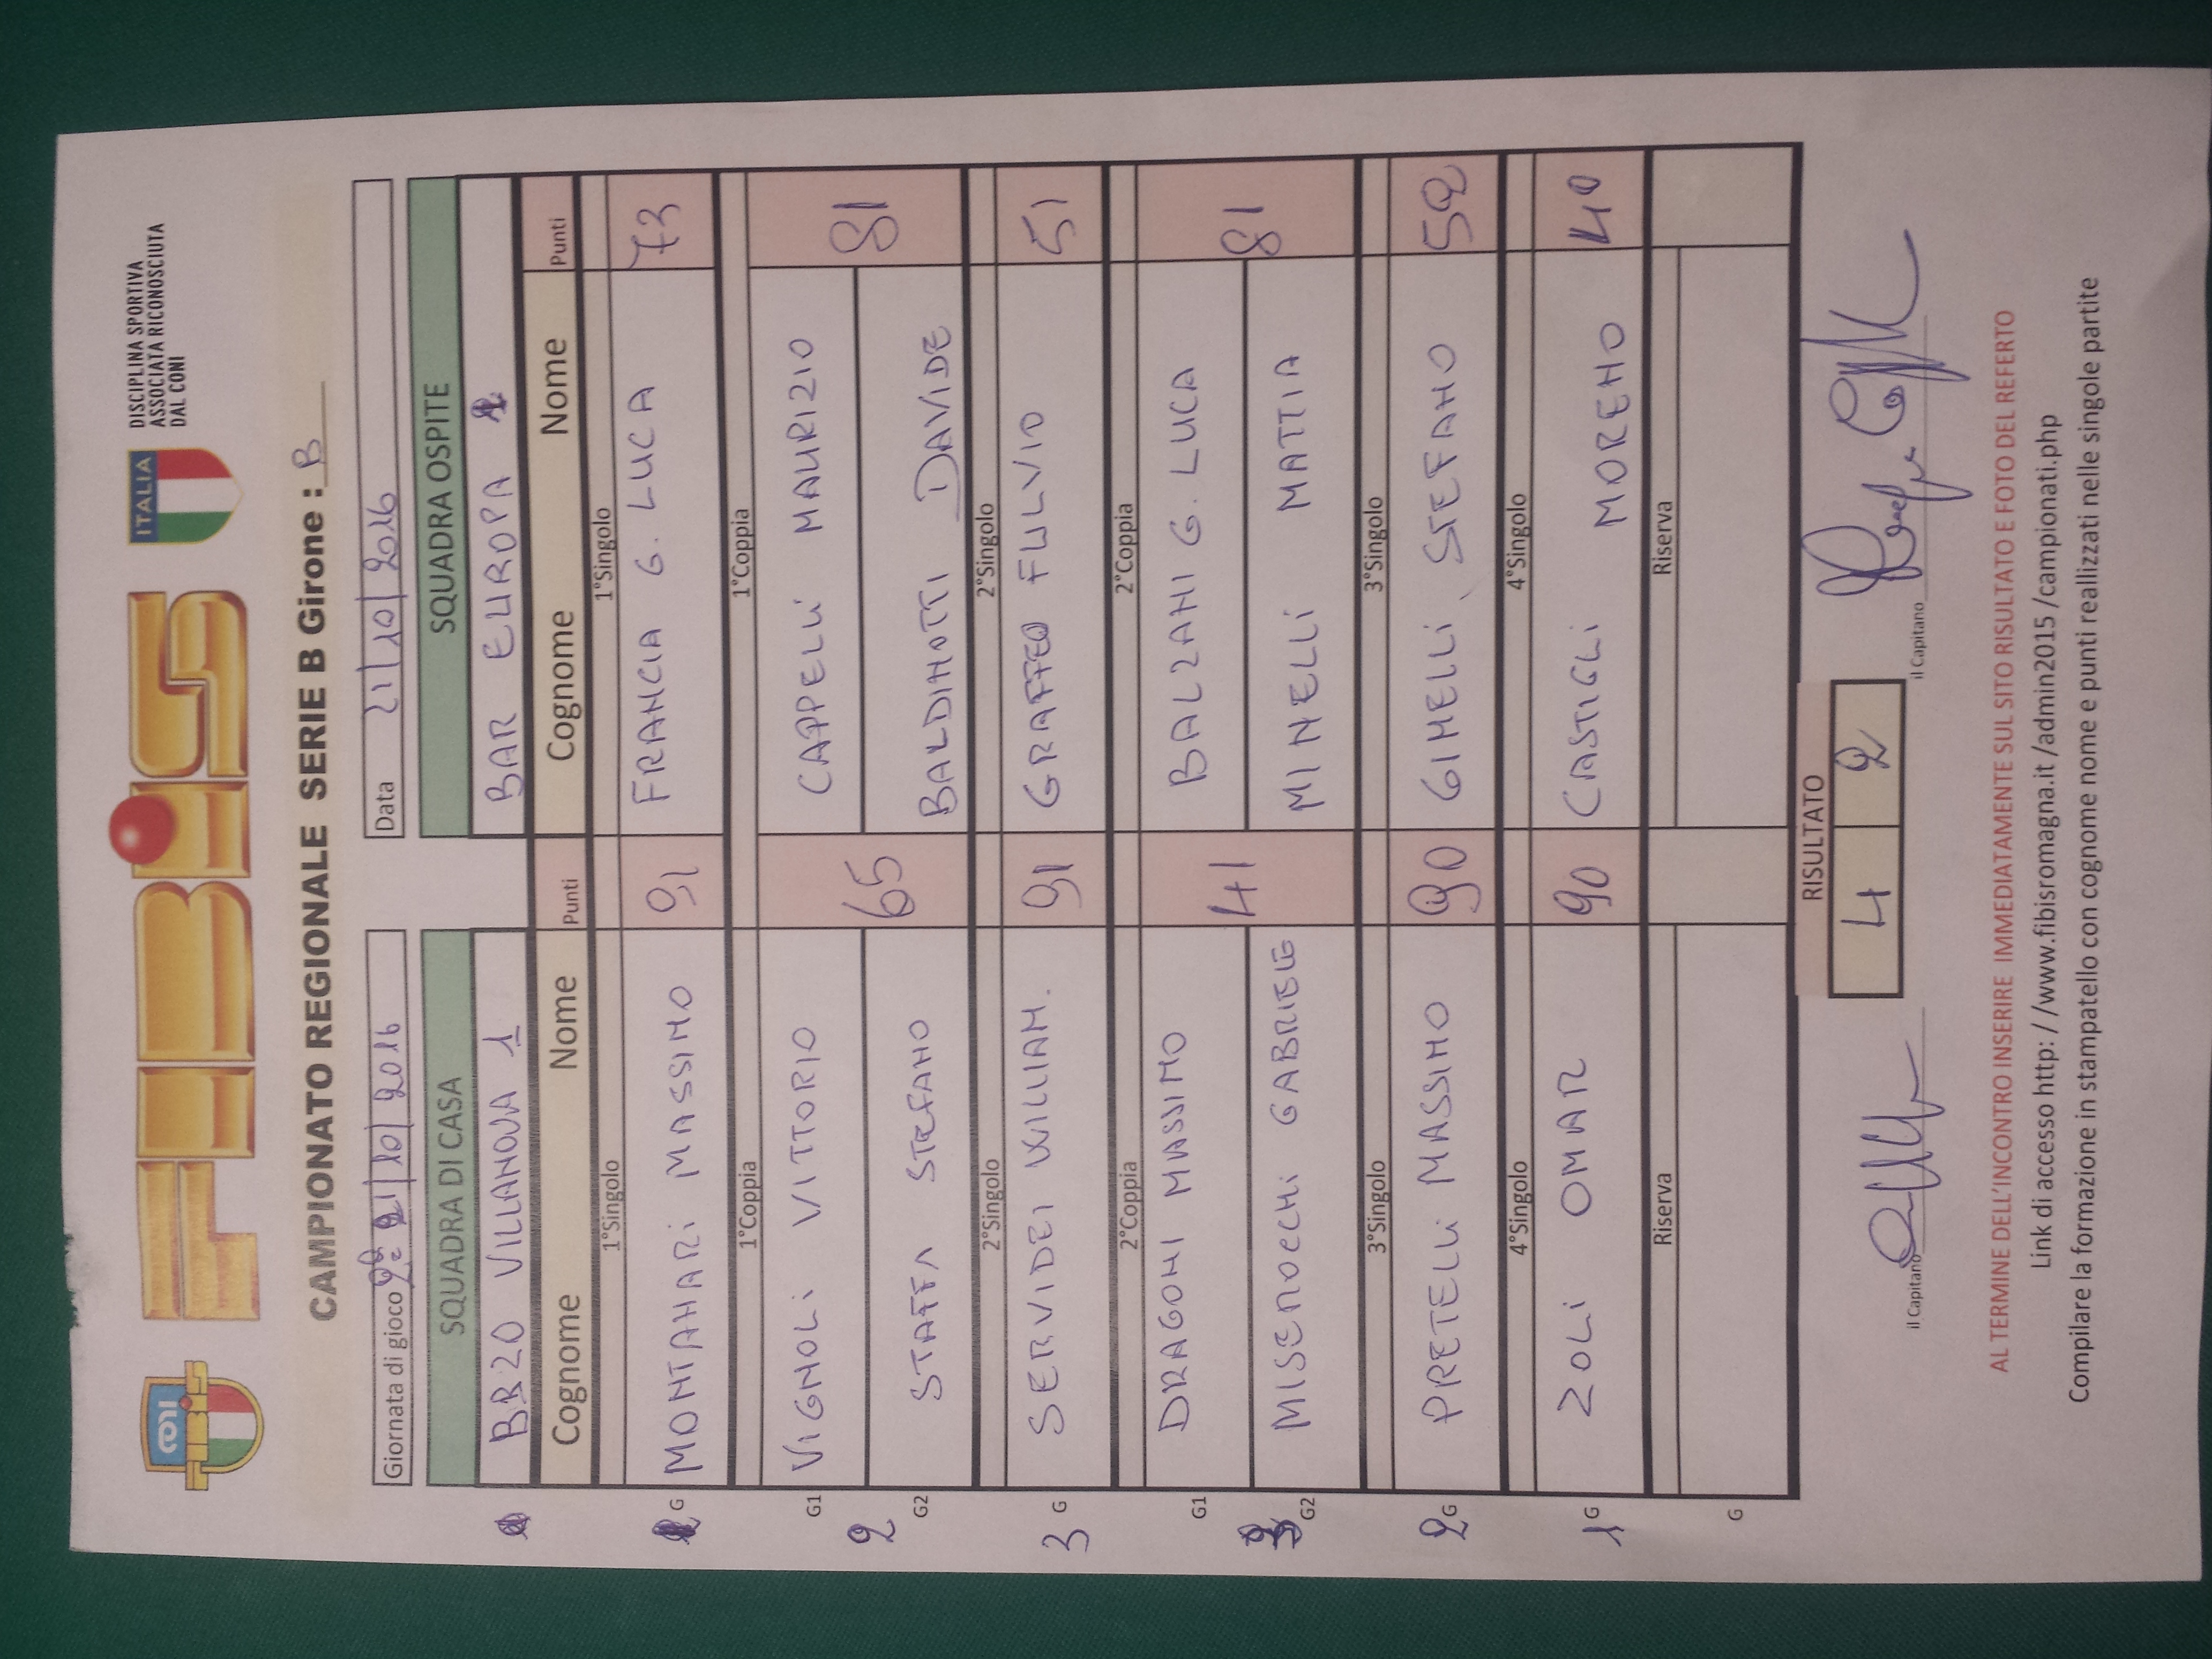 CONI
FIBIS
FIBiS
ITALIA
DISCIPLINA SPORTIVA
ASSOCIATA RICONOSCIUTA
DAL CONI
CAMPIONATO REGIONALE SERIE B Girone : B
Giornata di gioco 21/10/2016 Data 21/10/2016
SQUADRA DI CASA SQUADRA OSPITE
BR20 VILLANOVA 1 BAR EUROPA
Cognome Nome Punti Cognome Nome Punti
1°Singolo 1°Singolo
G MONTANARi MASSIMO 91 FRANCIA G. LUCA 73
1°Coppia 1°Coppia
G1 VIGNOLi VITTORIO CAPPELLi MAURIZIO
2 65 81
G2 STAFFA STEFANO BALDINOTTI DAVIDE
2°Singolo 2°Singolo
3 G SERVIDEI WILLIAM. 91 GRAFFEO FULVIO 51
2°Coppia 2°Coppia
G1 DRAGONI MASSIMO BALZANI G. LUCA
3 41 81
G2 MISEROCCHi GABRIELE MINELLi MATTIA
3°Singolo 3°Singolo
2 G PRETELLi MASSIMO 90 GINELLi STEFANO 52
4°Singolo 4°Singolo
1 G ZOLi OMAR 90 CASTIGLi MORENO 40
Riserva Riserva
G
RISULTATO
4 2
il Capitano il Capitano
AL TERMINE DELL'INCONTRO INSERIRE IMMEDIATAMENTE SUL SITO RISULTATO E FOTO DEL REFERTO
Link di accesso http: / /www.fibisromagna.it /admin2015 /campionati.php
Compilare la formazione in stampatello con cognome nome e punti reallizzati nelle singole partite